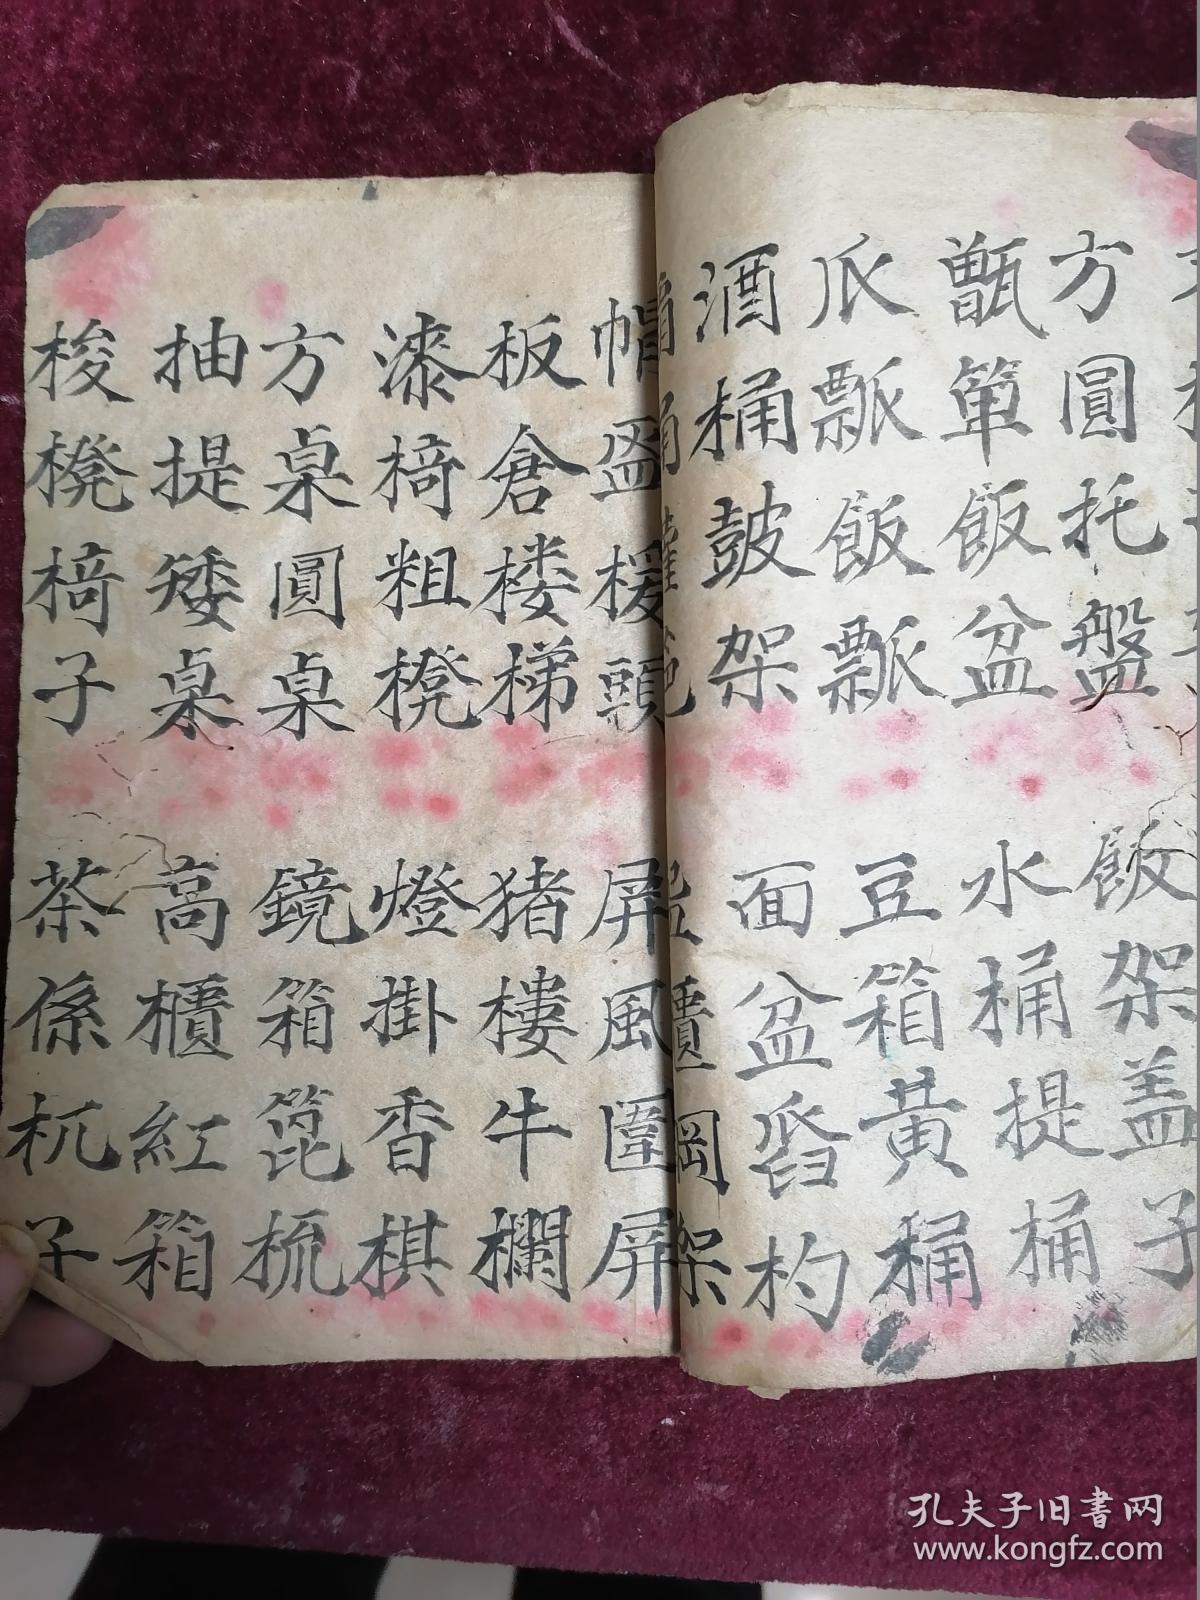 方圓托盤
飯架盖子
甑箄飯盆
水桶提桶
瓜瓢飯瓢
豆箱黄桶
酒桶鼓架
面盆舀杓
帽盔楥頭
屏風圍屏
板倉楼梯
猪樓牛欄
漆椅粗櫈
燈掛香棋
方桌圓桌
鏡箱篦梳
抽提矮桌
高櫃紅箱
梭櫈椅子
茶係杌子
孔夫子旧书网
www.kongfz.com